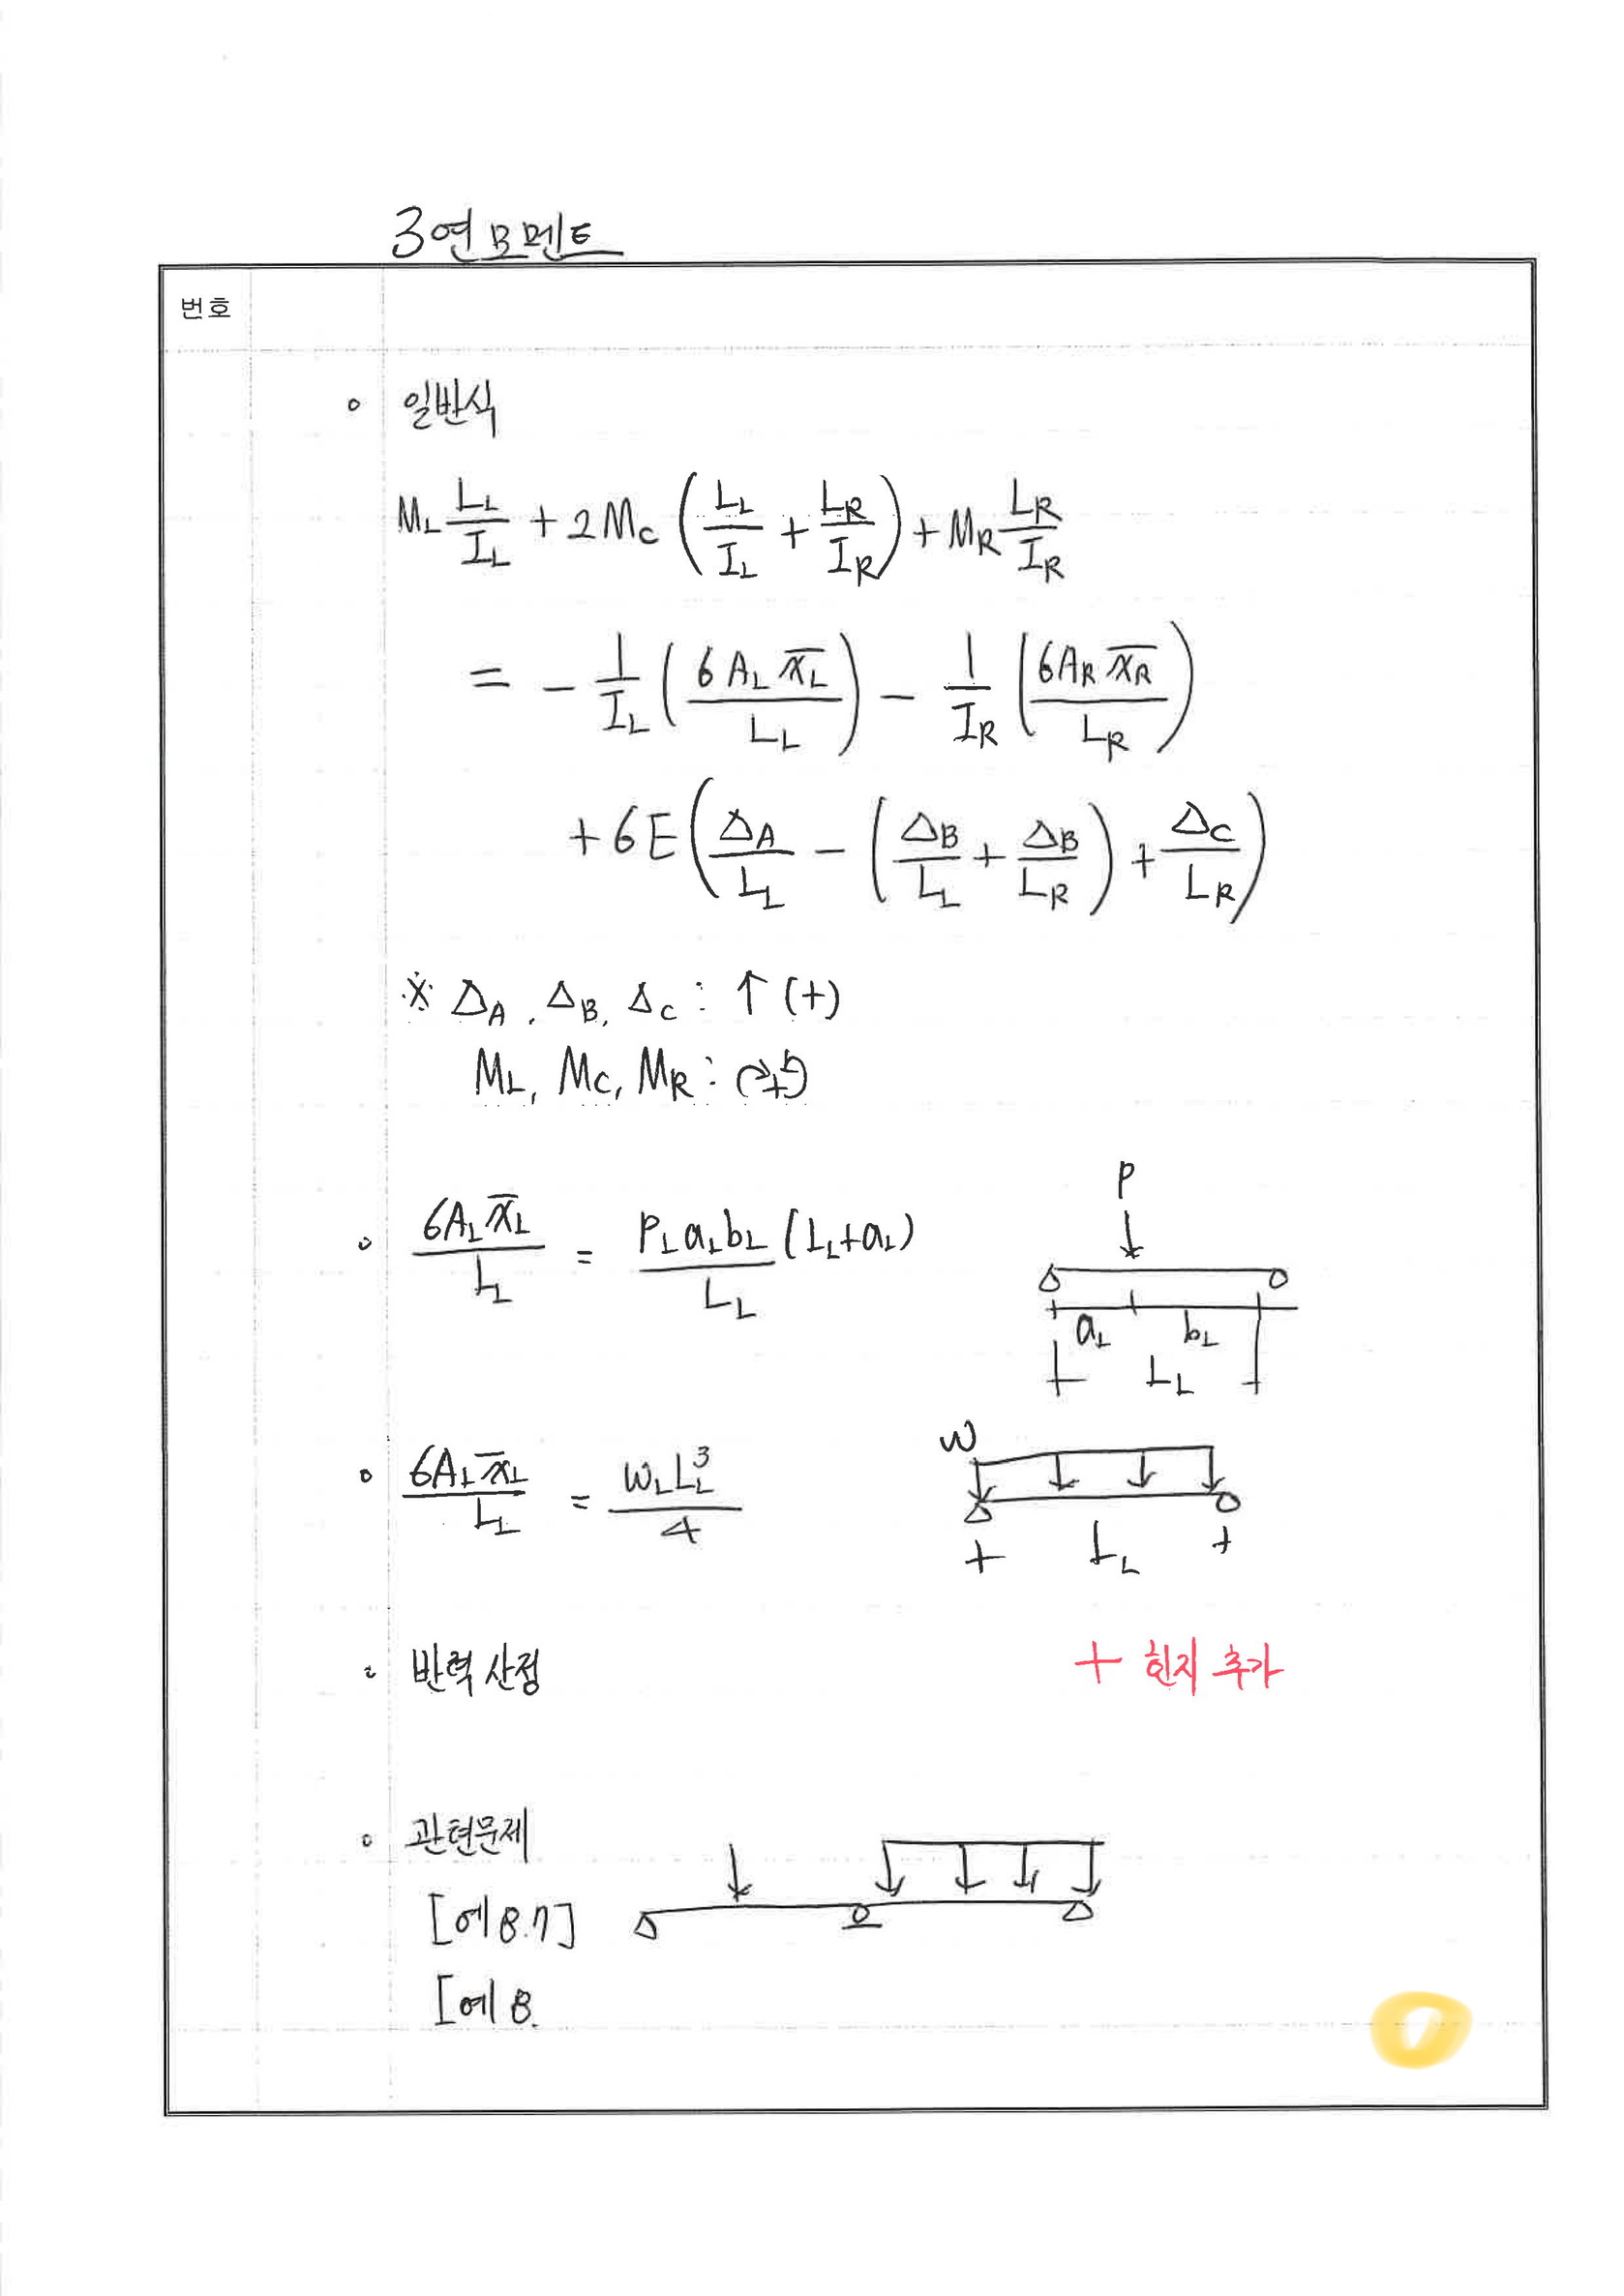 3연모멘트
번호
◦ 일반식
M_L L_L/I_L + 2M_C (L_L/I_L + L_R/I_R) + M_R L_R/I_R
= - 1/I_L (6A_L x̄_L / L_L) - 1/I_R (6A_R x̄_R / L_R)
+ 6E (Δ_A/L_L - (Δ_B/L_L + Δ_B/L_R) + Δ_C/L_R)
※ Δ_A, Δ_B, Δ_C : ↑ (+)
M_L, M_C, M_R : ↷+↶
P
◦ 6A_L x̄_L / L_L = P_L a_L b_L / L_L (L_L + a_L)
a_L b_L
L_L
W
◦ 6A_L x̄_L / L_L = w_L L_L³ / 4
L_L
◦ 반력 산정 + 힌지 추가
◦ 관련문제
[예 8.7]
[예 8.